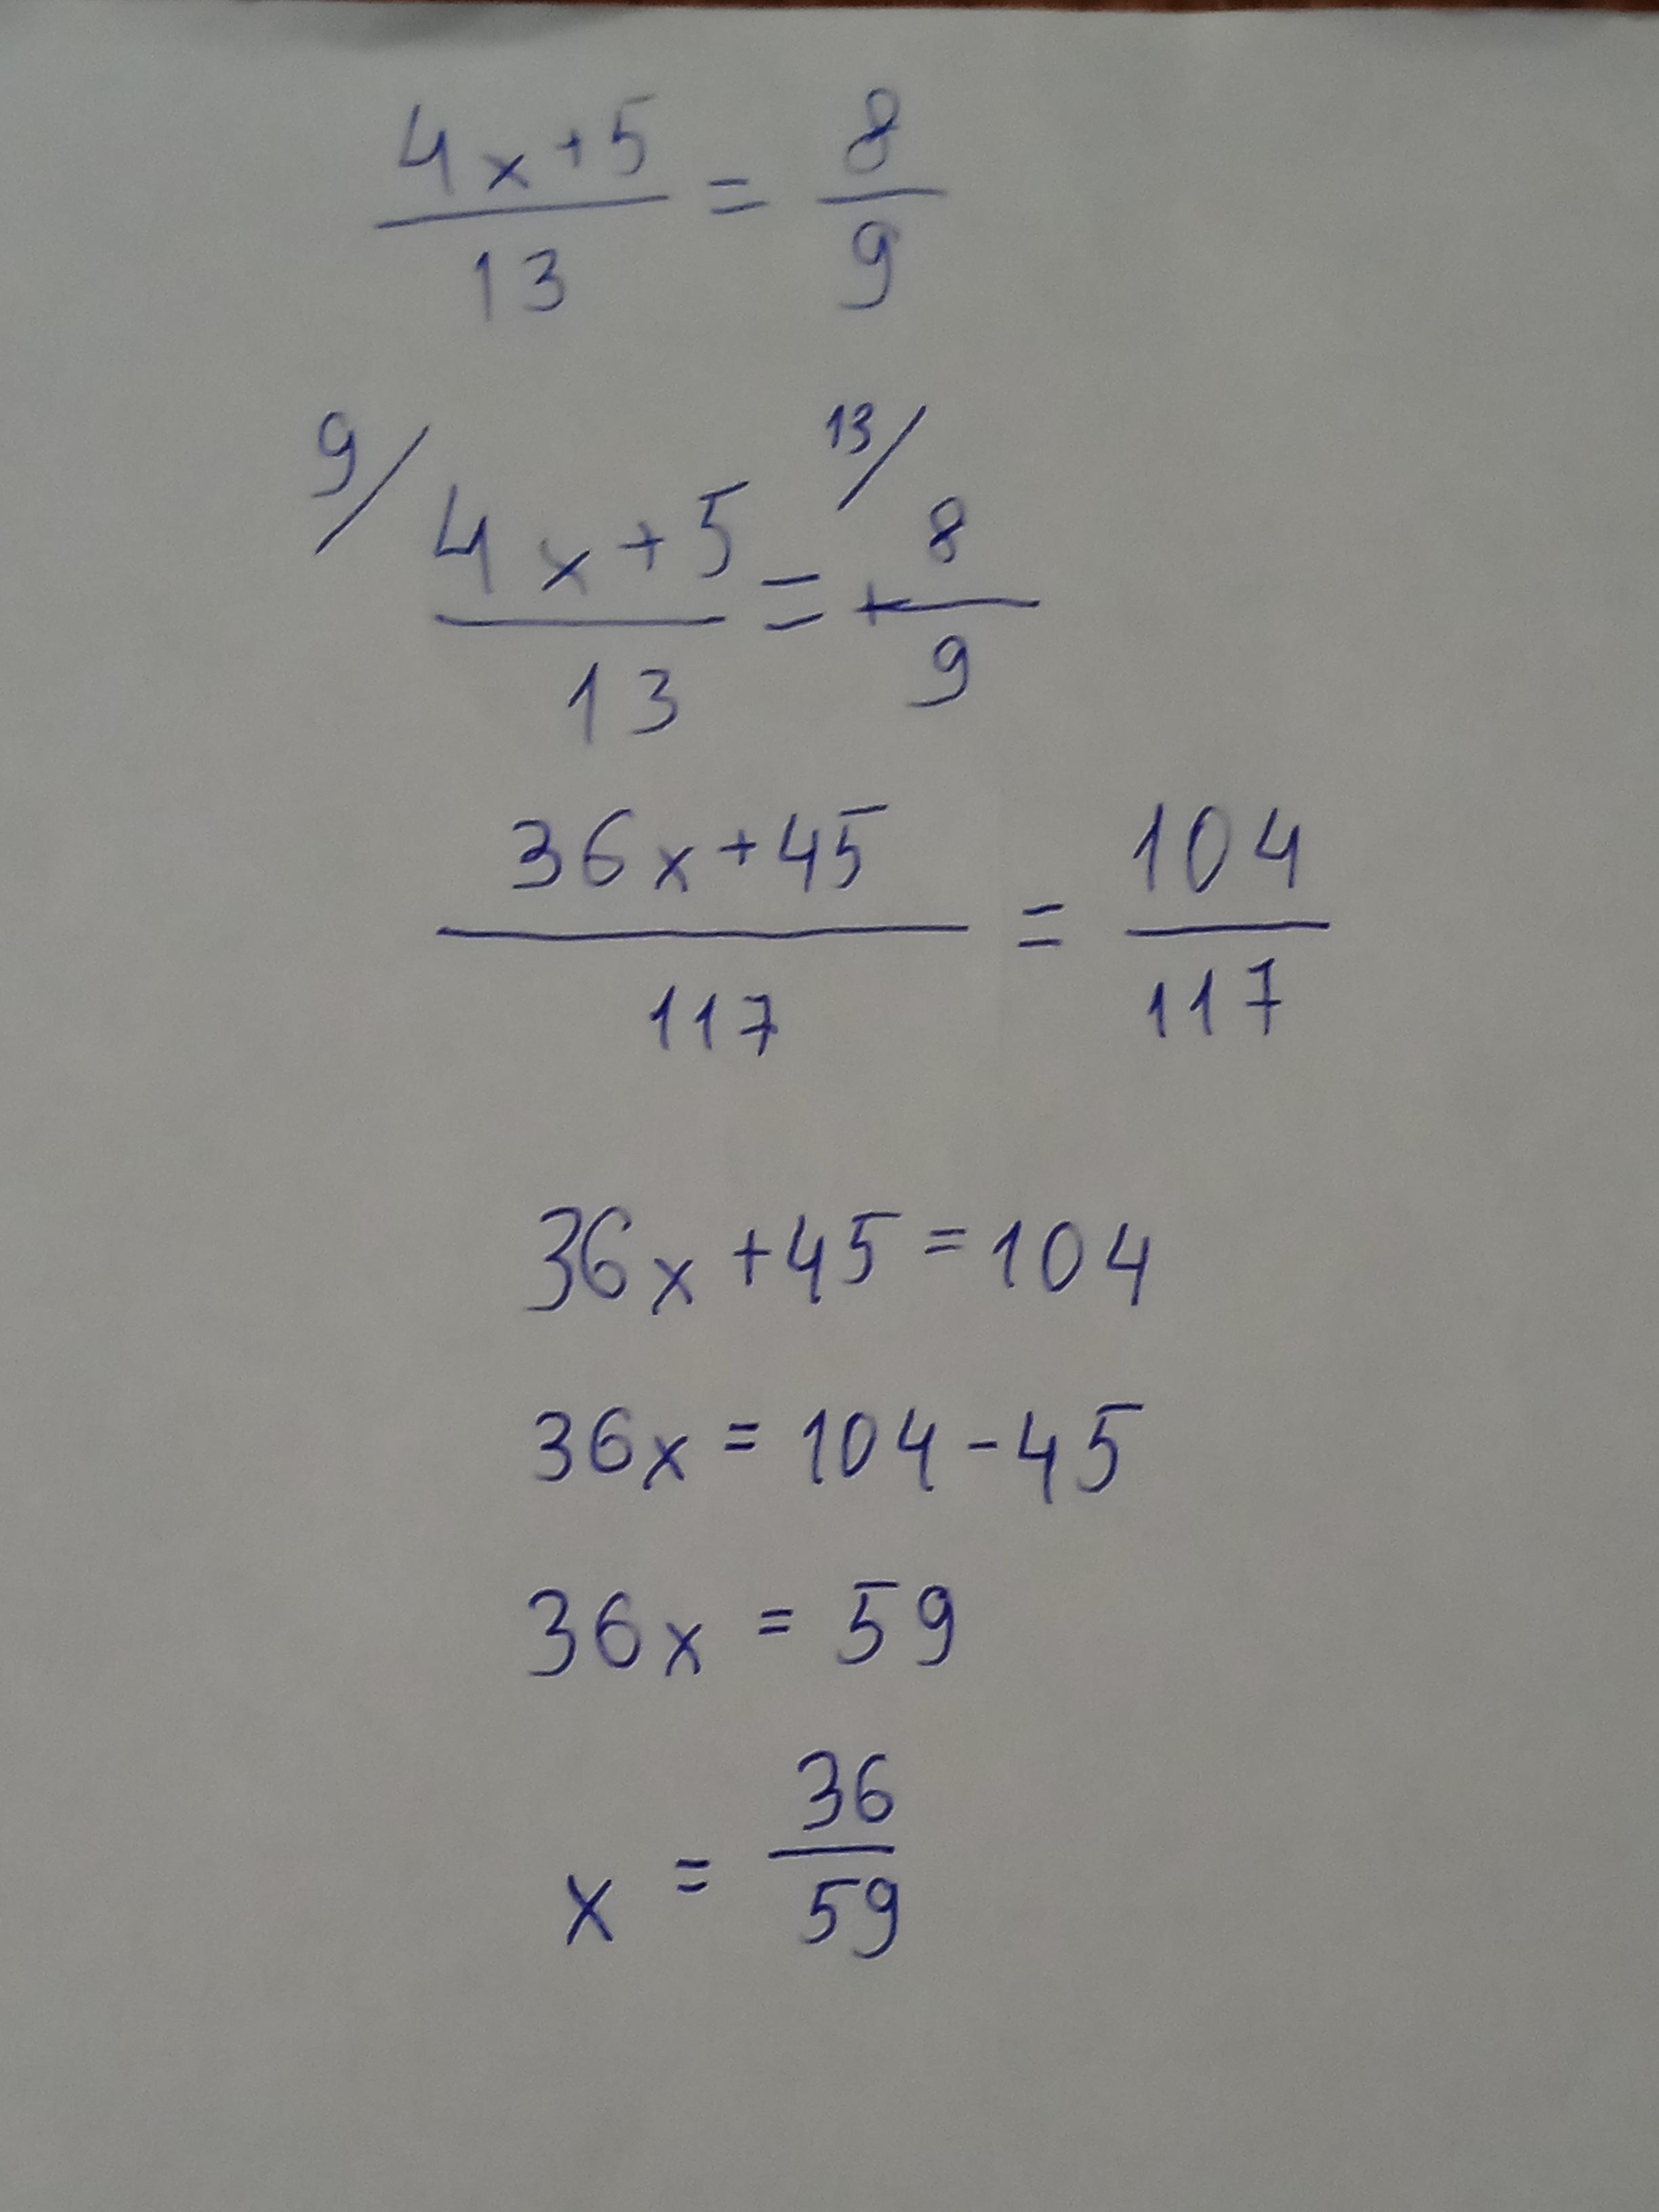 4x+5/13 = 8/9
9/ 4x+5/13 = 13/ +8/9
36x+45/117 = 104/117
36x+45=104
36x=104-45
36x=59
x=36/59